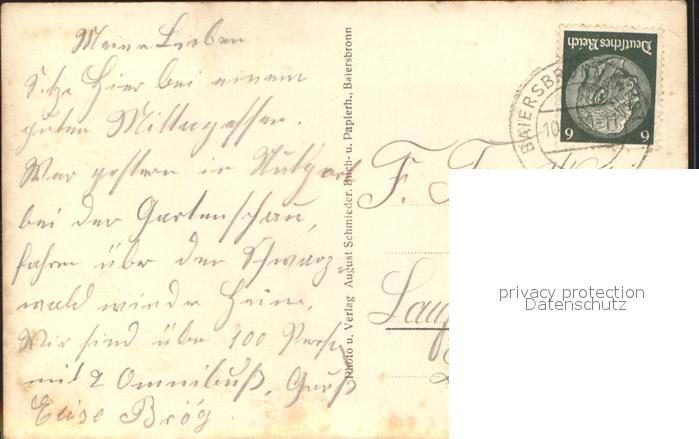 Meine Lieben
Sitze Hier bei einem
guten Mittagessen.
War gestern in Stutgart
bei der Gartenschau,
fahren über den Schwarz=
wald wieder Heim.
Wir sind über 100 Pers.
mit 2 Omnibuß, Gruß
Brög.
Photo u. Verlag August Schmieder, Buch- u. Papierh., Baiersbronn
Deutsches Reich
6 6
BAIERSBRONN
10
F.
Lauf
privacy protection
Datenschutz